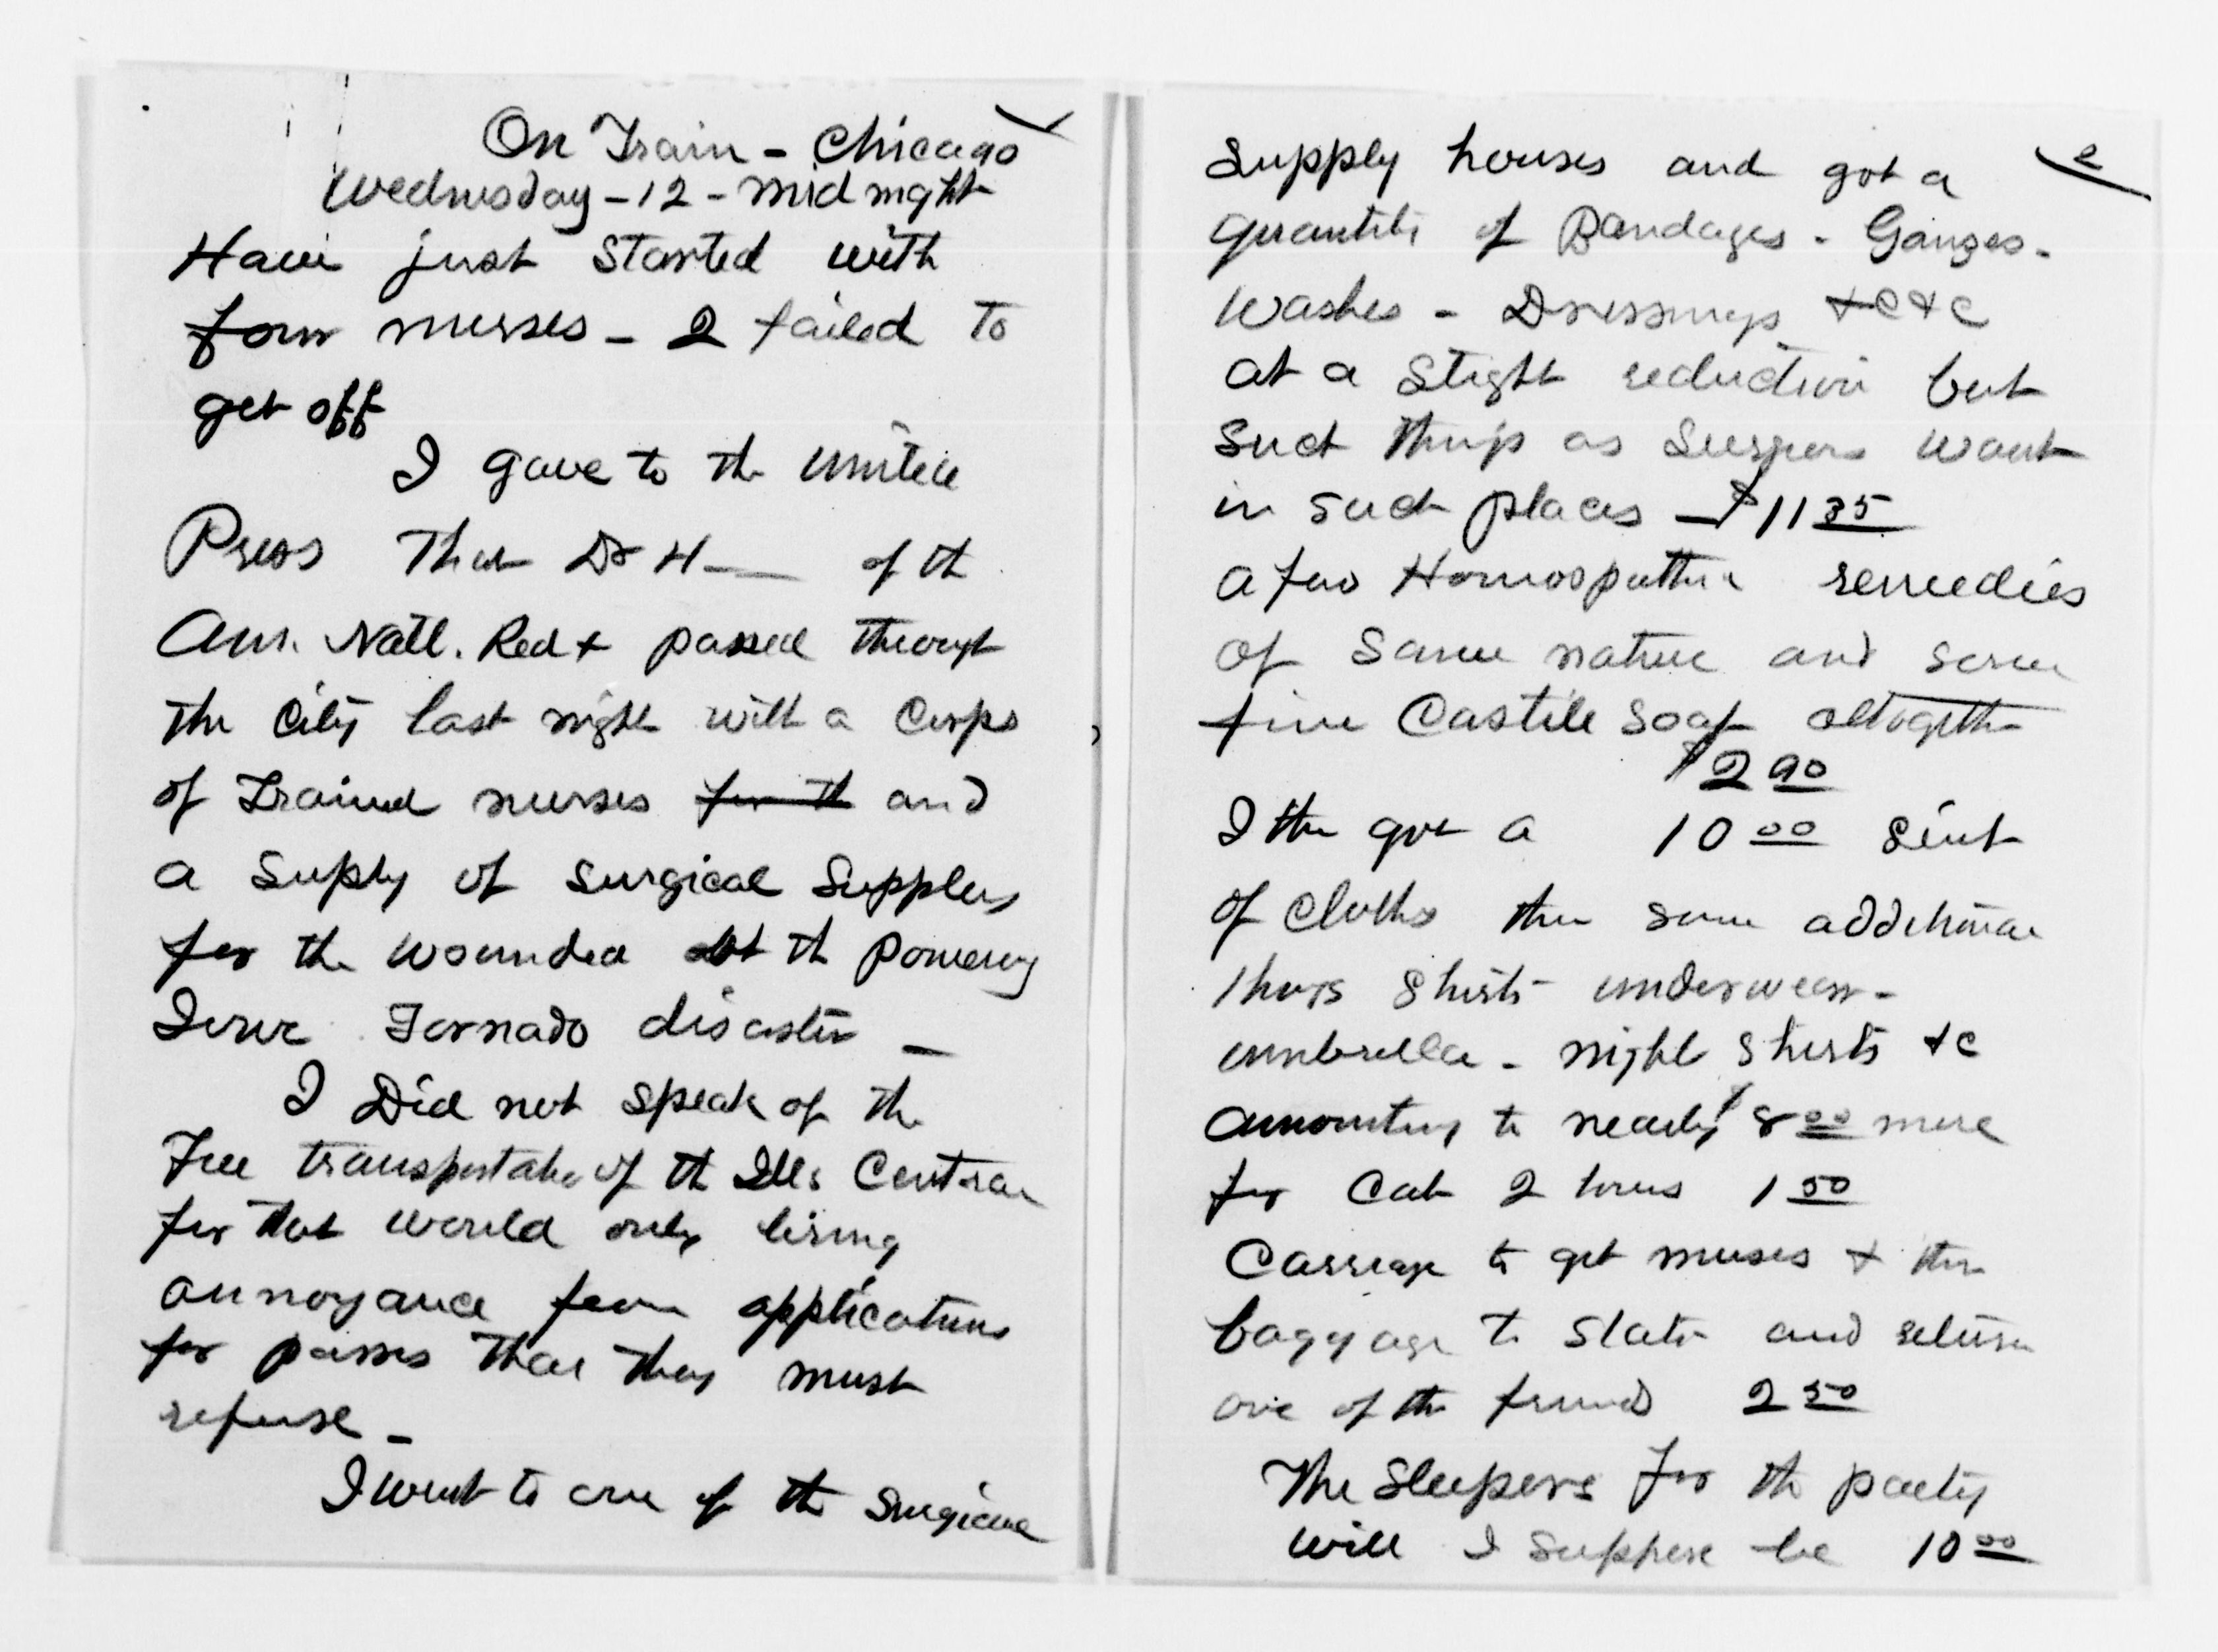 On Train - Chicago
Wednesday - 12 - midnight
Have just started with
four nurses - 2 failed to
get off
I gave to the United
Press that Dr H—— of th
Am. Natl. Red + passed through
the City last night with a Corps
of Trained nurses for th and
a suply of surgical supplies
for the wounded at th Pomeroy
Iowa Tornado disaster -
I Did not speak of the
Free transportation of th Ills Central
for that would only bring
annoyance from applications
for passes that they must
refuse -
I went to one of th Surgical
2
supply houses and got a
quantity of Bandages - Gauzes -
Washes - Dressings &c &c
at a slight reduction but
such things as Surgeons want
in such places - $11 35
a few Homeopathic remedies
of same nature and some
fine Castile soap altogether
$2 90
I then got a 10 00 suit
of cloths then some additional
things shirts - underwear -
umbrella - night shirts &c
amounting to nearly $8 00 more
for Cab 2 hours 1 50
Carriage to get nurses & their
baggage to station and return
one of th friends 2 50
The Sleepers for th party
will I suppose be 10 00